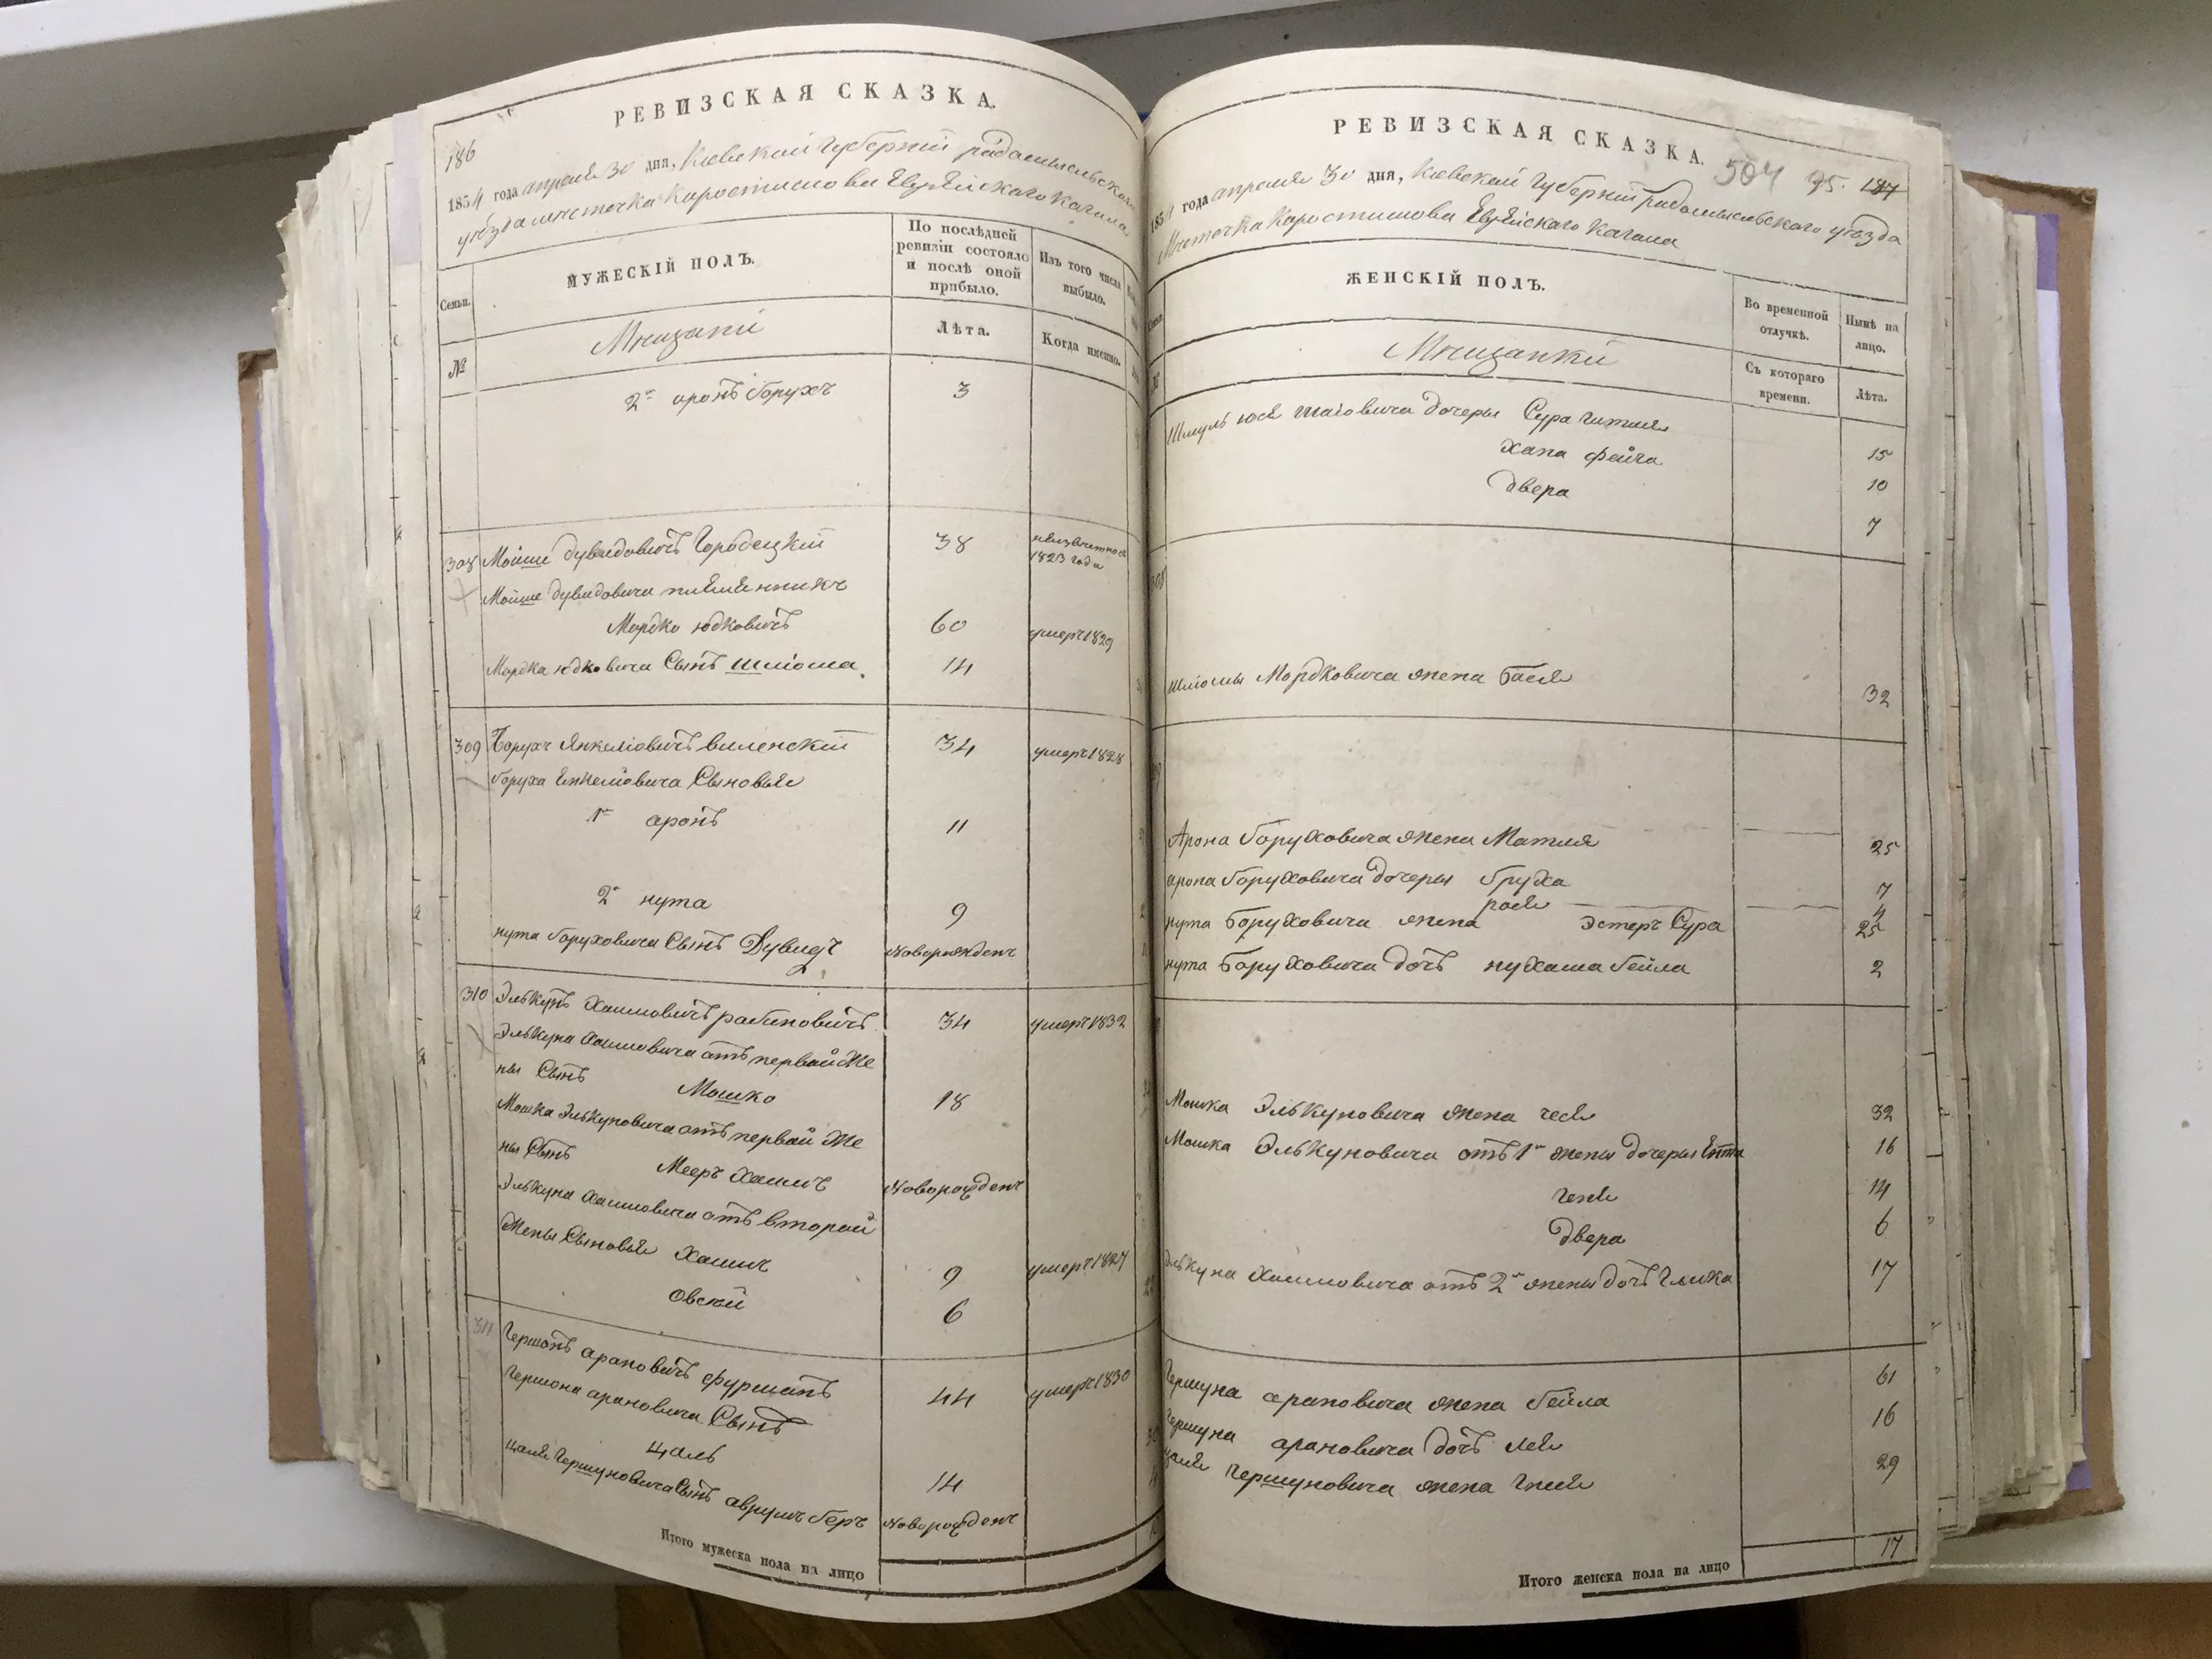 РЕВИЗСКАЯ СКАЗКА.
186
1834 года апреля 30 дня, Киевской Губерніи радомысльского
уезда местечка Коростишова Еврейского Кагала
Семьи.
МУЖЕСКІЙ ПОЛЪ.
По послѣдней ревизіи состояло и послѣ оной прибыло.
Изъ того числа выбыло.
№
Мѣщане
Лѣта.
Когда именно.
2й аронъ борухъ 3
308 Мойше дувидовичъ Городецкій 38 1823 года
Мойше дувидовича племенникъ
Мордко юдковичъ 60 умеръ 1829
Мордка юдковича Сынъ шліома 14
309 Борухъ Янкеліовичъ виленскій 34 умеръ 1828
боруха Янкеліовича Сыновья
1й аронъ 11
2й нута 9
нута боруховича Сынъ Дувидъ новорожденъ
310 Элькунъ Хаимовичъ рабиновичъ 34 умеръ 1832
Элькуна Хаимовича отъ первой Же
ны Сынъ Мошко 18
Мошка Элькуновича отъ первой Же
ны Сынъ Мееръ Хаимъ новорожденъ
Элькуна Хаимовича отъ второй
Жены Сыновья Хаимъ 9 умеръ 1827
Овсей 6
311 Гершонъ ароновичъ фурманъ 44 умеръ 1830
Гершона ароновича Сынъ
Цаль 14
Цаля Гершуновича Сынъ аврумъ беръ новорожденъ
Итого мужеска пола на лицо
РЕВИЗСКАЯ СКАЗКА.
504 95. 187
1834 года апреля 30 дня, Киевской Губерніи радомысльского уезда
Местечка Коростишова Еврейского Кагала
ЖЕНСКІЙ ПОЛЪ.
Во временной отлучкѣ.
Нынѣ на лицо.
Съ котораго времени.
Лѣта.
Шмуль дочеры Сура 15
Хана фейга 10
Двера 7
308
Шліомы Мордковича жена Бася 32
Арона боруховича жена Матля 25
арона боруховича дочеры бруха 7
рося 4
нута Боруховича жена Эстеръ Сура 25
нута Боруховича дочъ нухама бейла 2
Мошка Элькуновича жена чеся 32
Мошка Элькуновича отъ 1й жены дочеры Ента 16
геня 14
Двера 6
Элькуна Хаимовича отъ 2й жены дочъ Гликa 17
Гершуна ароновича жена бейла 61
Гершуна ароновича дочъ лея 16
Цаля Гершуновича жена 29
Итого женска пола на лицо 17